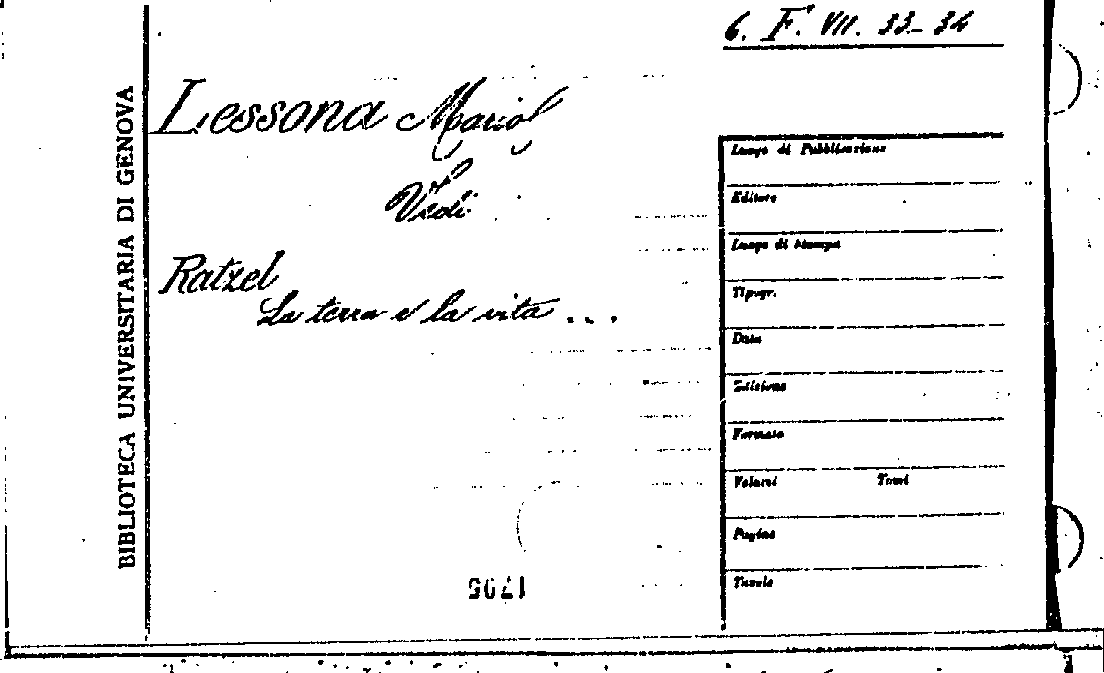 6. F. VII. 33-34
BIBLIOTECA UNIVERSITARIA DI GENOVA
Lessona Mario
Vedi
Ratzel
La terra e la vita ...
Luogo di Pubblicazione
Editore
Luogo di Stampa
Tipogr.
Data
Edizione
Formato
Volumi Tomi
Pagine
Tavole